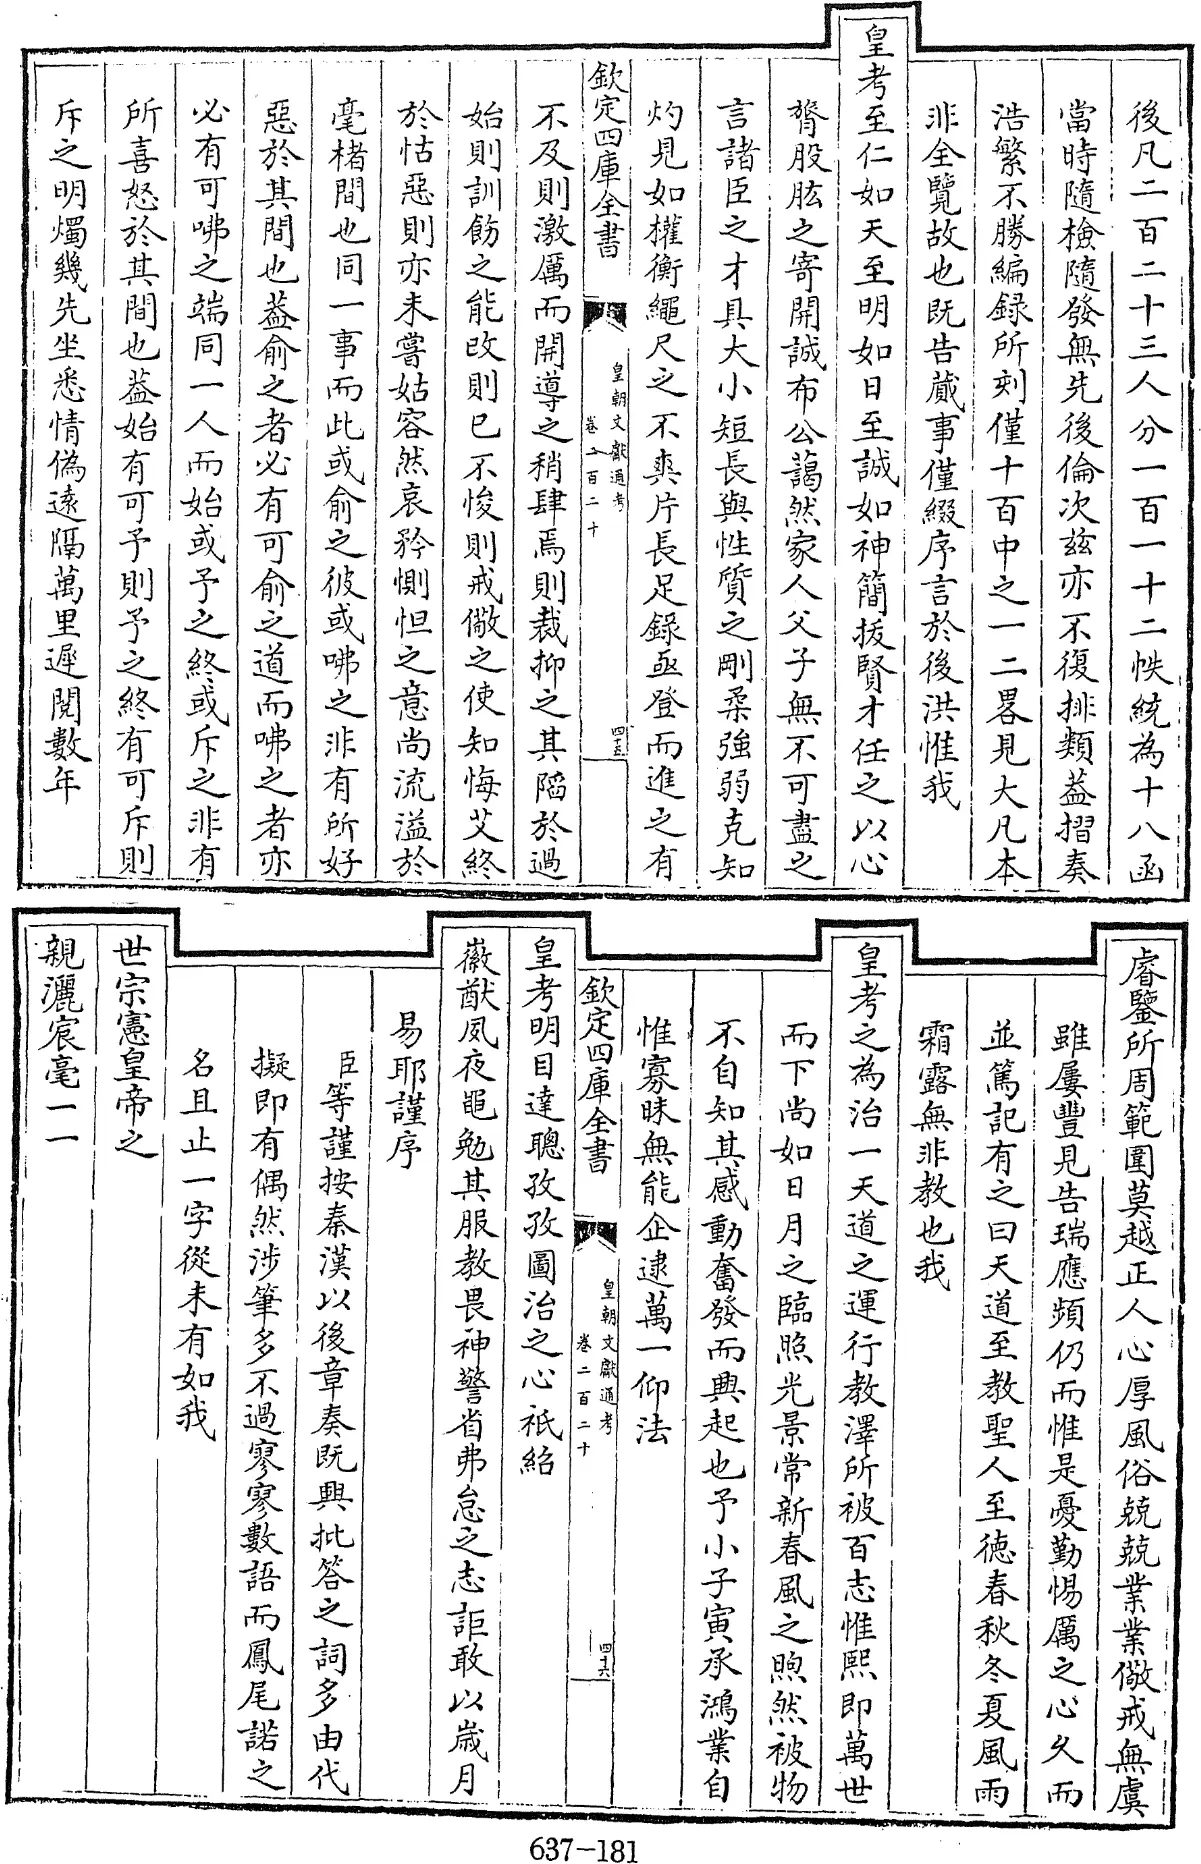 後凡二百二十三人分一百一十二帙統為十八函
當時隨檢隨發無先後倫次兹亦不復排類葢摺奏
浩繁不勝編録所刻僅十百中之一二畧見大凡本
非全覽故也既告蕆事僅綴序言於後洪惟我
皇考至仁如天至明如日至誠如神簡拔賢才任之以心
膂股肱之寄開誠布公藹然家人父子無不可盡之
言諸臣之才具大小短長與性質之剛柔強弱克知
灼見如權衡繩尺之不爽片長足錄亟登而進之有
欽定四庫全書
皇朝文獻通考
卷二百二十
四十五
不及則激厲而開導之稍肆焉則裁抑之其陷於過
始則訓飭之能改則已不悛則戒儆之使知悔艾終
於怙惡則亦未嘗姑容然哀矜惻怛之意尚流溢於
毫楮間也同一事而此或俞之彼或咈之非有所好
惡於其間也葢俞之者必有可俞之道而咈之者亦
必有可咈之端同一人而始或予之終或斥之非有
所喜怒於其間也葢始有可予則予之終有可斥則
斥之明燭幾先坐悉情偽遠隔萬里遲閱數年
睿鑒所周範圍莫越正人心厚風俗兢兢業業儆戒無虞
雖屢豐見告瑞應頻仍而惟是憂勤惕厲之心久而
並篤記有之曰天道至教聖人至德春秋冬夏風雨
霜露無非教也我
皇考之為治一天道之運行教澤所被百志惟熙即萬世
而下尚如日月之臨照光景常新春風之煦然被物
不自知其感動奮發而興起也予小子寅承鴻業自
惟寡昧無能企逮萬一仰法
欽定四庫全書
皇朝文獻通考
卷二百二十
四十六
皇考明目達聰孜孜圖治之心祇紹
徽猷夙夜黽勉其服教畏神警省弗怠之志詎敢以歲月
易耶謹序
臣等謹按秦漢以後章奏既興批答之詞多由代
擬即有偶然涉筆多不過寥寥數語而鳳尾諾之
名且止一字從未有如我
世宗憲皇帝之
親灑宸毫一一
637-181